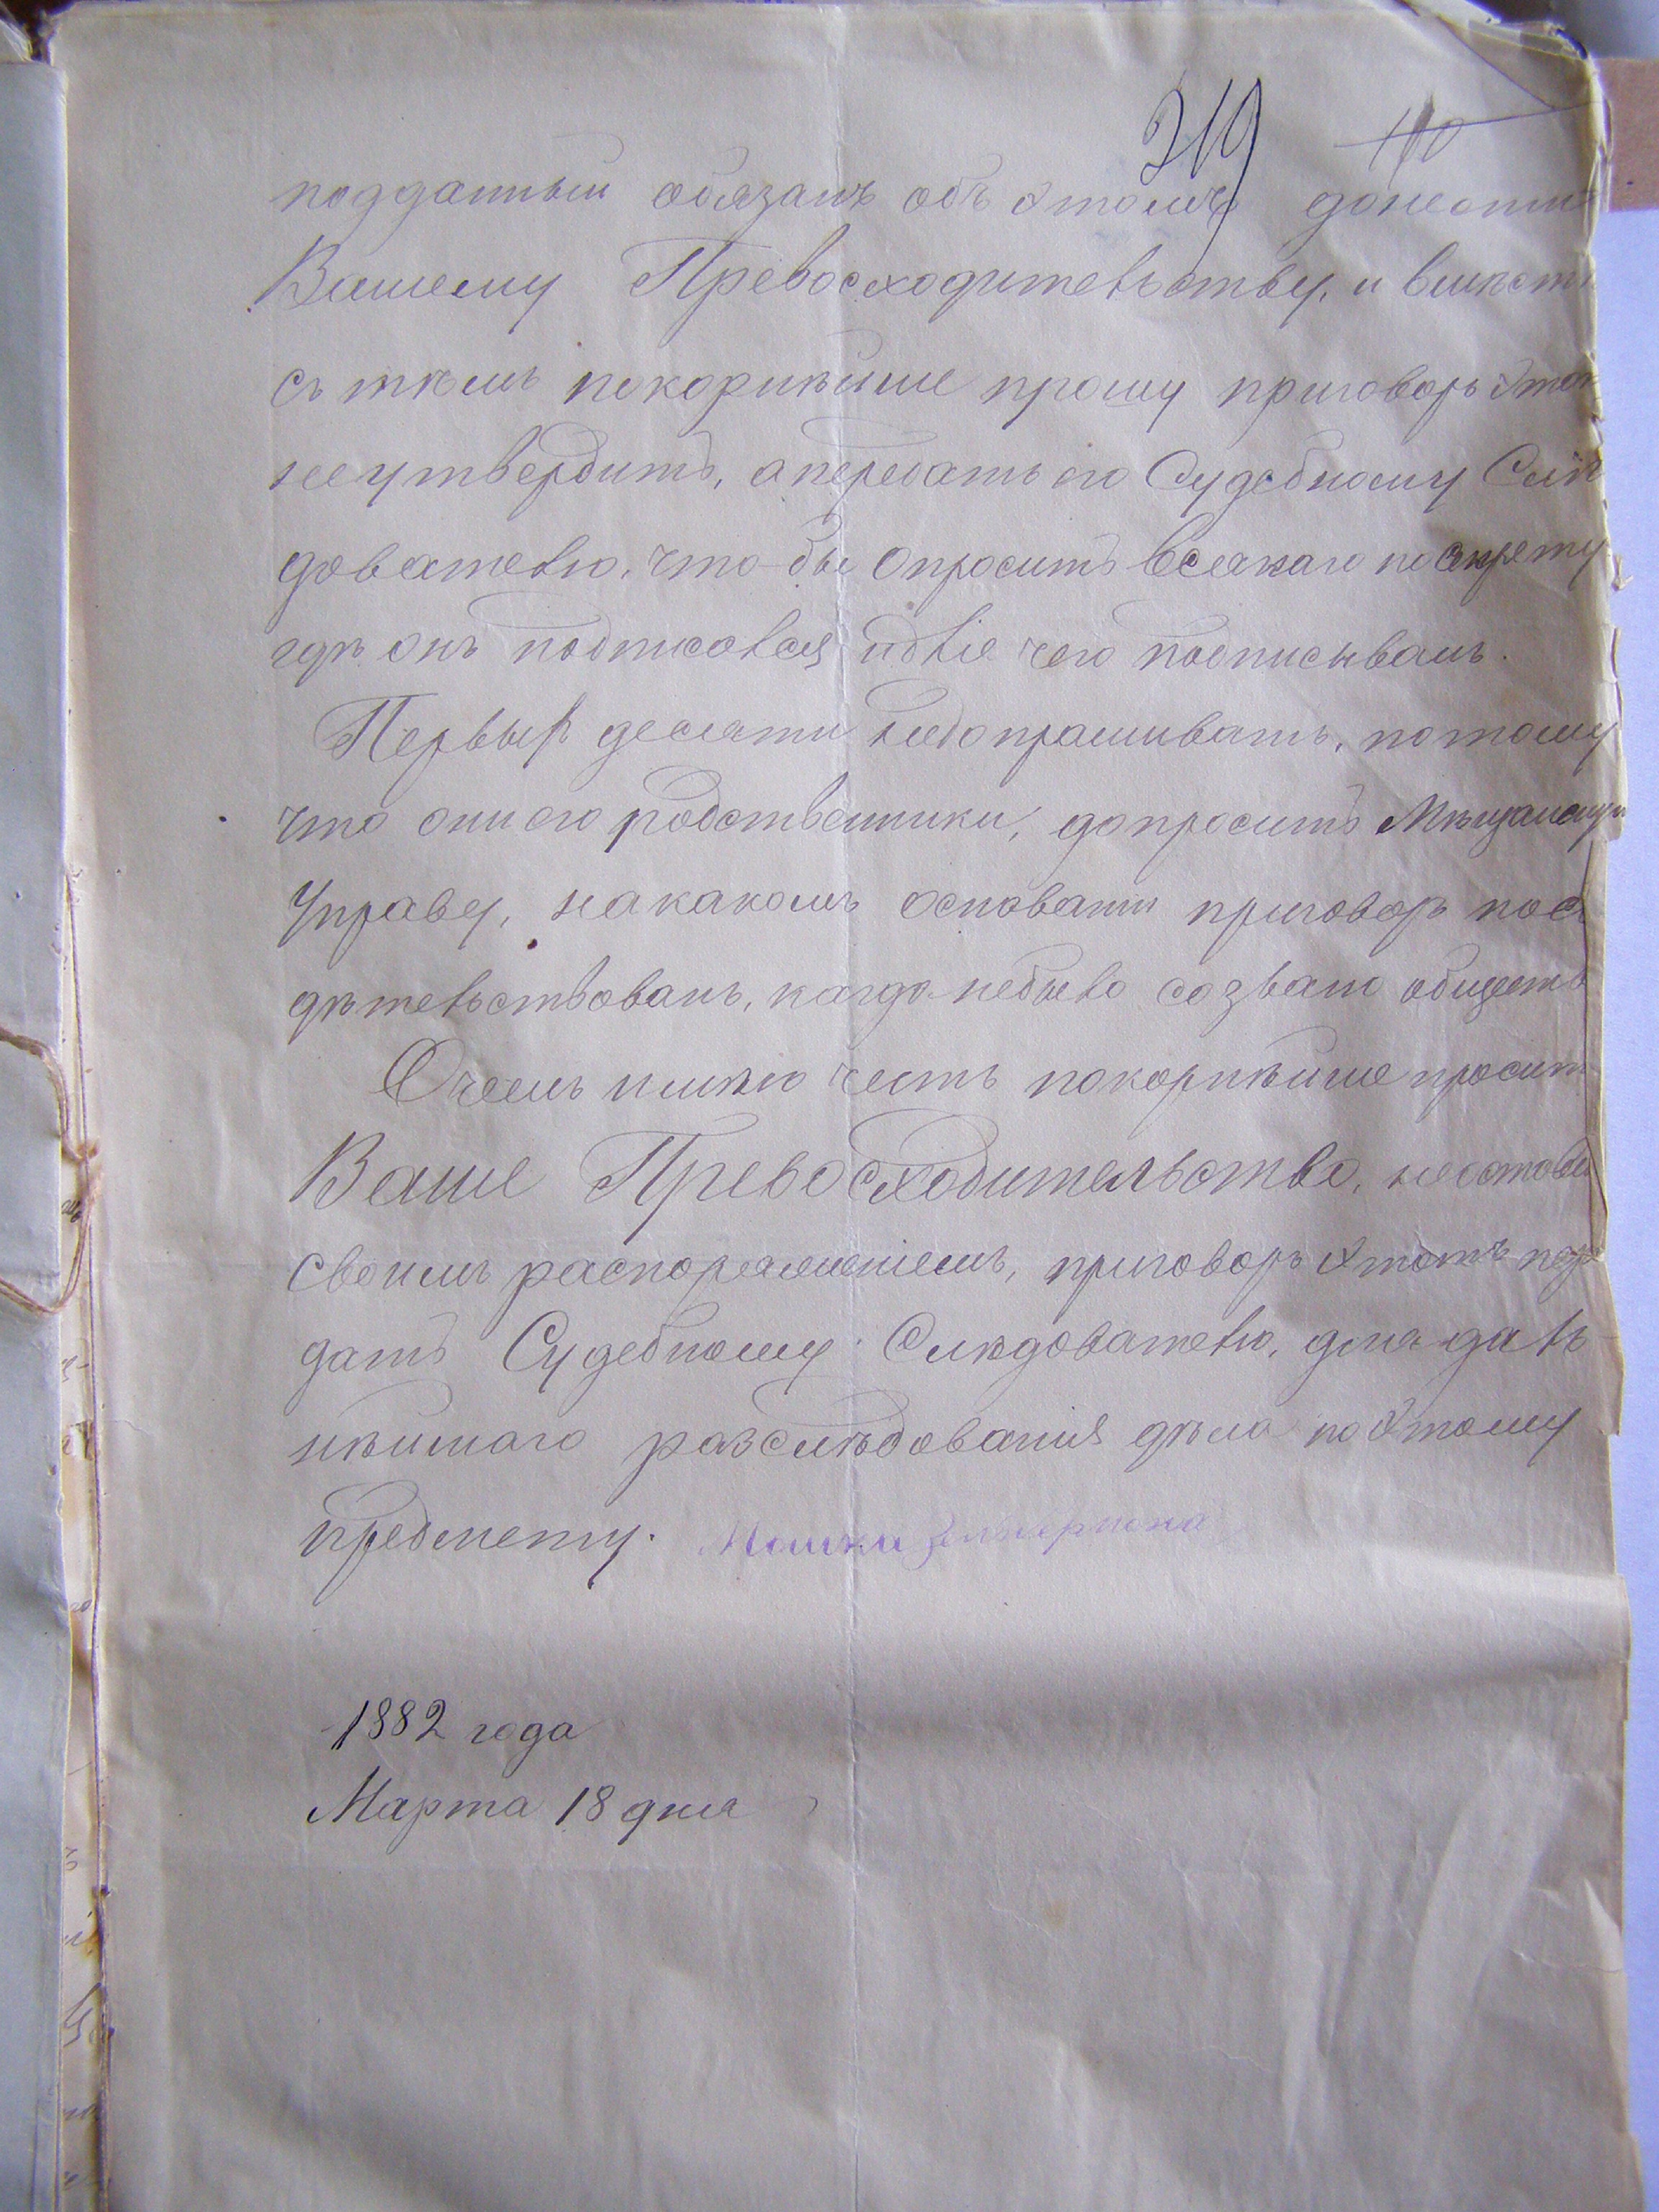 319 110
подданный обязанъ объ этомъ донести
Вашему Превосходительству, и вмѣстѣ
съ тѣмъ покорнѣйше прошу приговоръ этотъ
не утвердить, а передать его Судебному Слѣ
дователю, что-бы опросить всякаго по секрету
гдѣ онъ подписовался и для чего подписывалъ.
Первых десяти недопрашивать, потому
что они его родственники, допросить Мѣщанскую
Управу, на какомъ основании приговоръ посви
дѣтельствованъ, когда небыло созвано общество
Очень имѣю честь покорнѣйше просить
Ваше Превосходительство, неоставьте
своимъ распоряженіемъ, приговоръ этотъ пере
дать Судебному Слѣдователю, для даль-
нѣйшаго разслѣдованія дѣла по этому
предмету. Мошки
1882 года
Марта 18 дня